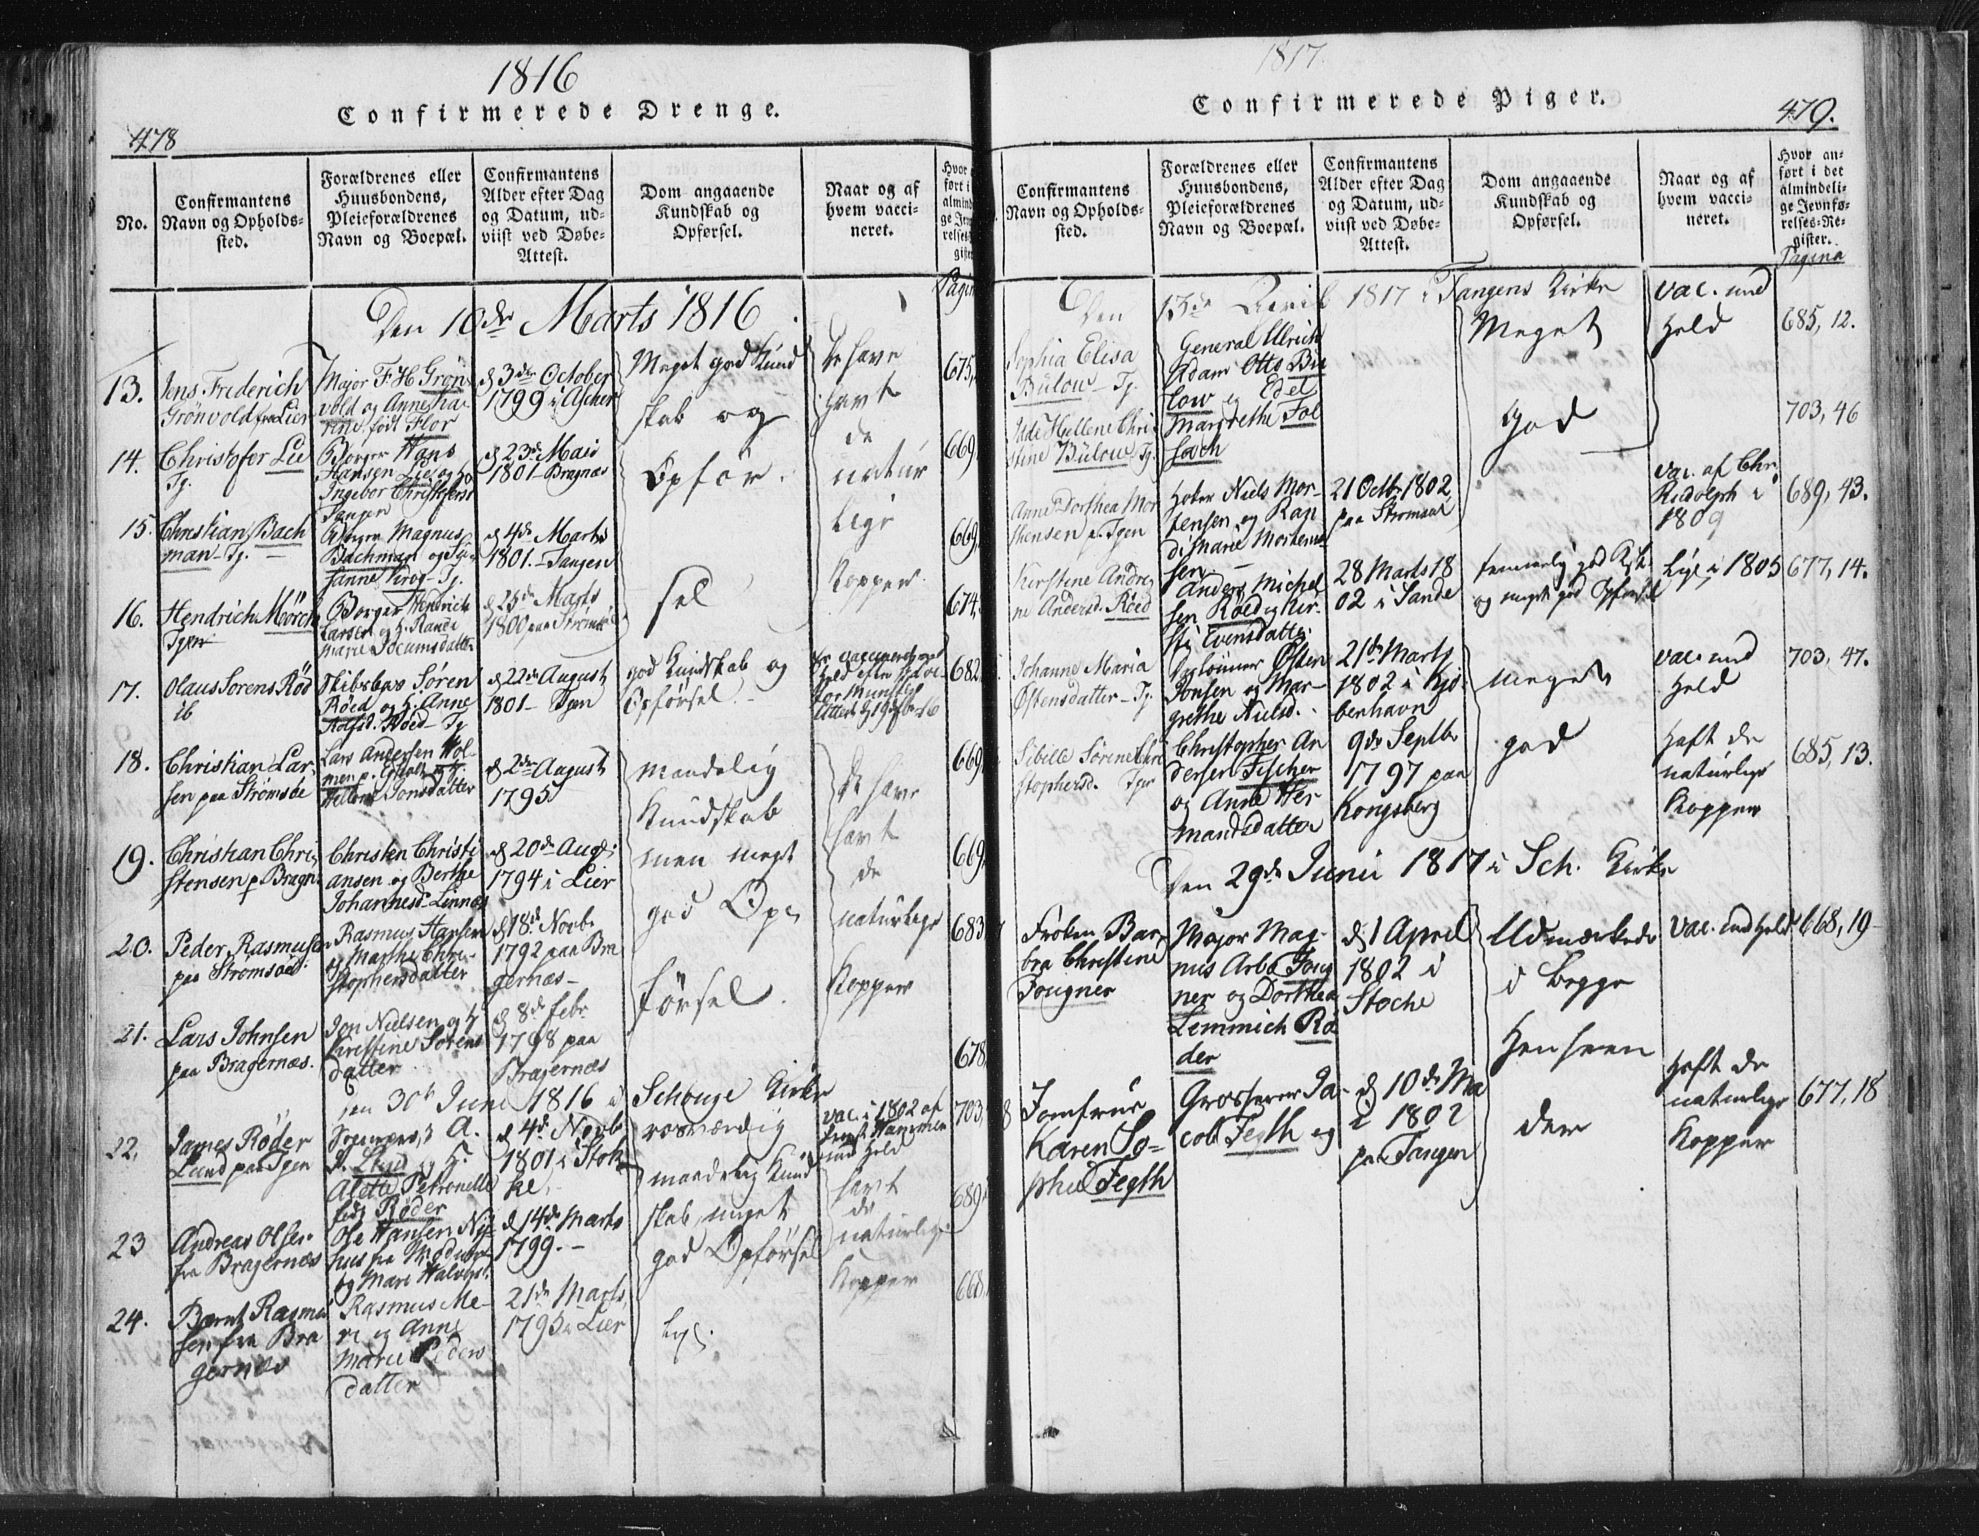 1816
Confirmerede Drenge.
478
No.
Confirmantens
Navn og Opholds-
sted.
Forældrenes eller
Huusbondens,
Pleieforældrenes
Navn og Boepæl.
Confirmantens
Alder efter Dag
og Datum, ud-
viist ved Døbe-
Attest.
Dom angaaende
Kundskab og
Opførsel.
Naar og af
hvem vacci-
neret.
Den 10de Marts 1816
13.
Jens Friderich
Grönvold fra Lier
Major F. H Grön-
vold og Anne
født Flor
d 3de October
1799 i Asker
Meget god Kund
skab og
Opför
sel
De have
havt
de
natur
lige
Kopper
675,
14.
Christofer Lie
Tg.
Borger Hans
Hansen Lie og H
Ingebor Christofersd
Tangen
d 23de Mai
1801 - Bragnæs
669,
15.
Christian Bach
man - Tg.
Borger Magnus
Bachman og Su-
sanne - Tg.
d 4de Marts
1801. - Tangen
669,
16.
Hendrich Möörch
Tgen
Borger Hendrich
Larsen og H. Randi
Marie Jocumsdatter
d 25de Marts
1800 paa Strømsøe
674,
17.
Olaus Sorens Röd
ib
Skibsbygger Sören
Röed og H. Anne
Röed - Tg
d 22de August
1801 - Tgen
god Kundskab og
Opførsel. -
682,
18.
Christian Lar-
sen paa Strömsöe
Lars Andersen Hol-
men p.
Helene Jonsdatter
d 2den August
1795
maadelig
Kundskab
men meget
god Op-
förssel.
De have
havt
de
naturlige
Kopper
669,
19.
Christian Chri-
stensen p Bragn.
Christen Christi
ansen og Berthe
Johannesd. Linnæs
d 20de Aug.
1794 i Lier
669,
20.
Peder Rasmusen
paa Strömsöe.
Rasmus Hansen
og Marthe Chri-
stophersdatter
d 18de Novb.
1792 paa Bra
gernæs -
683,
21.
Lars Johnsen
paa Bragernæs.
Jon Nielsen og H
Kirstine Sörens
datter
d 8de Febr.
1798 paa
Bragernæs
678,
den 30te June 1816 i Schouge Kirke
22.
James Röder
Lund paa Tgen
A.
Lund og H.
Alette Petronelle
född Röder
d 4de Novb
1801 i Stok
ke,
rosværdig
vac. i 1802 af
med Held
703,
23
Andreas Olsen
fra Bragernæs
Ole Hansen Ny-
huus fra Modum
og Mari Halvorsd.
d 14de Marts
1799. -
maadelig Kund
skab, meget
god Opførsel
havt
de
naturlige
Kopper
689,
24.
Bernt Rasmu
sen fra Bra
gernæs
Rasmus Me-
og Anne
Marie Peders
datter
21de Marts
1795 i Lier
lige.
668,
1817.
Confirmerede Piger.
479.
Confirmantens
Navn og Opholds-
sted.
Forældrenes eller
Huusbondens,
Pleieforældrenes
Navn og Boepæl.
Confirmantens
Alder efter Dag
og Datum, ud-
viist ved Døbe-
Attest.
Dom angaaende
Kundskab og
Opførsel.
Naar og af
hvem vacci-
neret.
Hvor an-
ført i det
almindeli-
ge Jevnfø-
relses-Re-
gister.
Pagina
Den 13de April 1817 i Tangens Kirke
Sophia Elisa
Bülow - Tg.
General Ulrich
Adam Otto Bü
low og Edel
Margrethe Fol
sach
Meget
god
vac. med
Held
685, 12.
Ide Hellene Chri
stine Bülow Tg.
703, 46
Anne Dorthea Mor
thensen p. Tgen
Niels Mor-
tensen og Ran
di Marie Mortens-
sen. -
21 Octb. 1802
paa Strömsøe
vac. af Chr.
Rudolph i
1809
689, 43.
Kirstine Andre
ne Andersd. Röed
Anders Michel
sen Röed og Kir-
sti Evensdatter
28 Marts 18
02 i Sande
temmelig god K
og meget god Opførsel
Lige i 1805
677, 14.
Johanne Maria
Østensdatter - Tg.
Østen
Jonsen og Mar-
grethe Nielsd.
21de Marts
1802 i Kjö-
benhavn
meget
god
vac. med
Held
703, 47.
Sibille Sörine Chri
stophersd. Tgen
Christopher An
dersen Fischer
og Anne Her
mandsdatter
9de Septb.
1797 paa
Kongsberg
Haft de
naturlige
Kopper
685, 13.
Den 29de Junii 1817 i Sch. Kirke
Fröken Bar-
bra Christine
Fougner
Major Mag-
nus Arbo Foug
ner og Dorthea
Lemmich Rö
der
d 1 April
1802 i
Stocke
Udmærkede
i begge
Henseen
der
Vac. med Held
668, 19
8
Jomfrue
Karen So-
phie Fegth
Grosserer Ja-
cob Fegth og
d 10de Ma
i 1802
paa Tangen
Haft de
naturlige
Kopper
677, 18